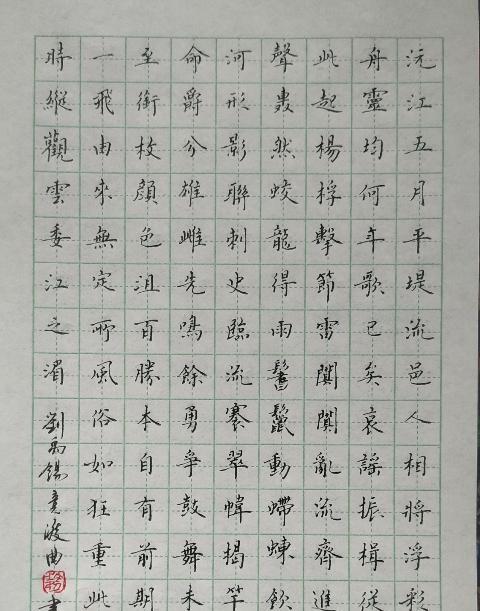 沅江五月平堤流邑人相將浮彩
舟靈均何年歌已矣哀謠振楫從
此起楊桴擊節雷闐闐亂流齊進
聲轟然蛟龍得雨鬐鬣動螮蝀飲
河形影聯刺史臨流褰翠幃揭竿
命爵分雄雌先鳴餘勇爭鼓舞未
至銜枚顏色沮百勝本自有前期
一飛由來無定所風俗如狂重此
時縱觀雲委江之湄劉禹錫竞渡曲書